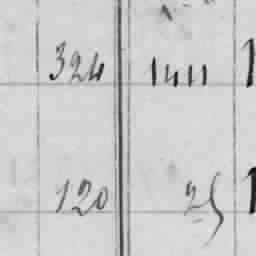 324 1411
120 25